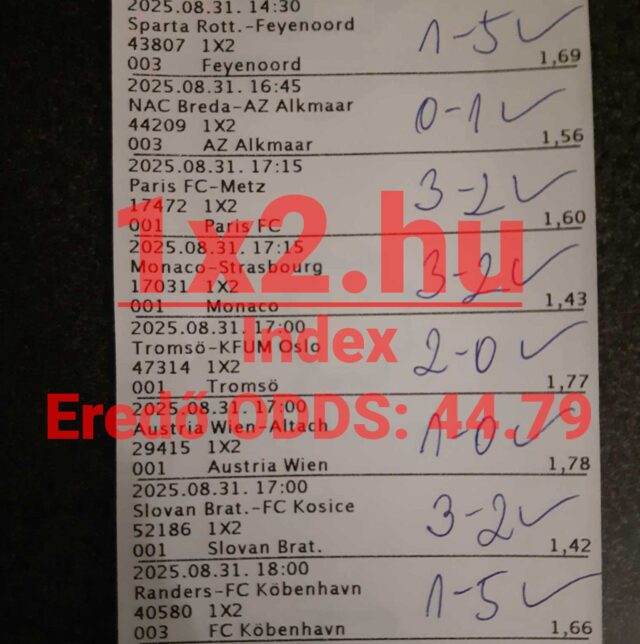 2025.08.31. 14:30
Sparta Rott.-Feyenoord
43807 1X2
003 Feyenoord 1,69
1-5 ✓
2025.08.31. 16:45
NAC Breda-AZ Alkmaar
44209 1X2
003 AZ Alkmaar 1,56
0-1 ✓
2025.08.31. 17:15
Paris FC-Metz
17472 1X2
001 Paris FC 1,60
3-2 ✓
2025.08.31. 17:15
Monaco-Strasbourg
17031 1X2
001 Monaco 1,43
3-2 ✓
2025.08.31. 17:00
Tromsö-KFUM Oslo
47314 1X2
001 Tromsö 1,77
2-0 ✓
2025.08.31. 17:00
Austria Wien-Altach
29415 1X2
001 Austria Wien 1,78
1-0 ✓
2025.08.31. 17:00
Slovan Brat.-FC Kosice
52186 1X2
001 Slovan Brat. 1,42
3-2 ✓
2025.08.31. 18:00
Randers-FC Köbenhavn
40580 1X2
003 FC Köbenhavn 1,66
1-5 ✓
1x2.hu
Index
Eredő ODDS: 44.79